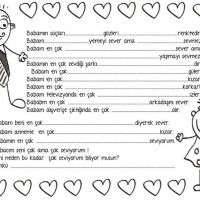 Babamın saçları..............gözleri....................renktedir.
Babam....................yemeyi sever ama....................sevmez.
Babam en çok....................sever ama
....................yapmayı sevmez
Babamın en çok sevdiği şarkı....................dır.
Babam en çok....................güler.
Babam en çok....................kızar.
Babam en çok....................korkar.
Babam televizyonda en çok....................izler.
Babam en çok....................arkadaşını sever.
Babam alışverişe çıktığında en çok....................alır.
Babam beni en çok....................diyerek sever.
Babam annemle en çok....................
Babamın en çok....................seviyorum
Babacım seni çok ama çok seviyorum!
Seni neden bu kadar çok seviyorum biliyor musun?
Çünkü